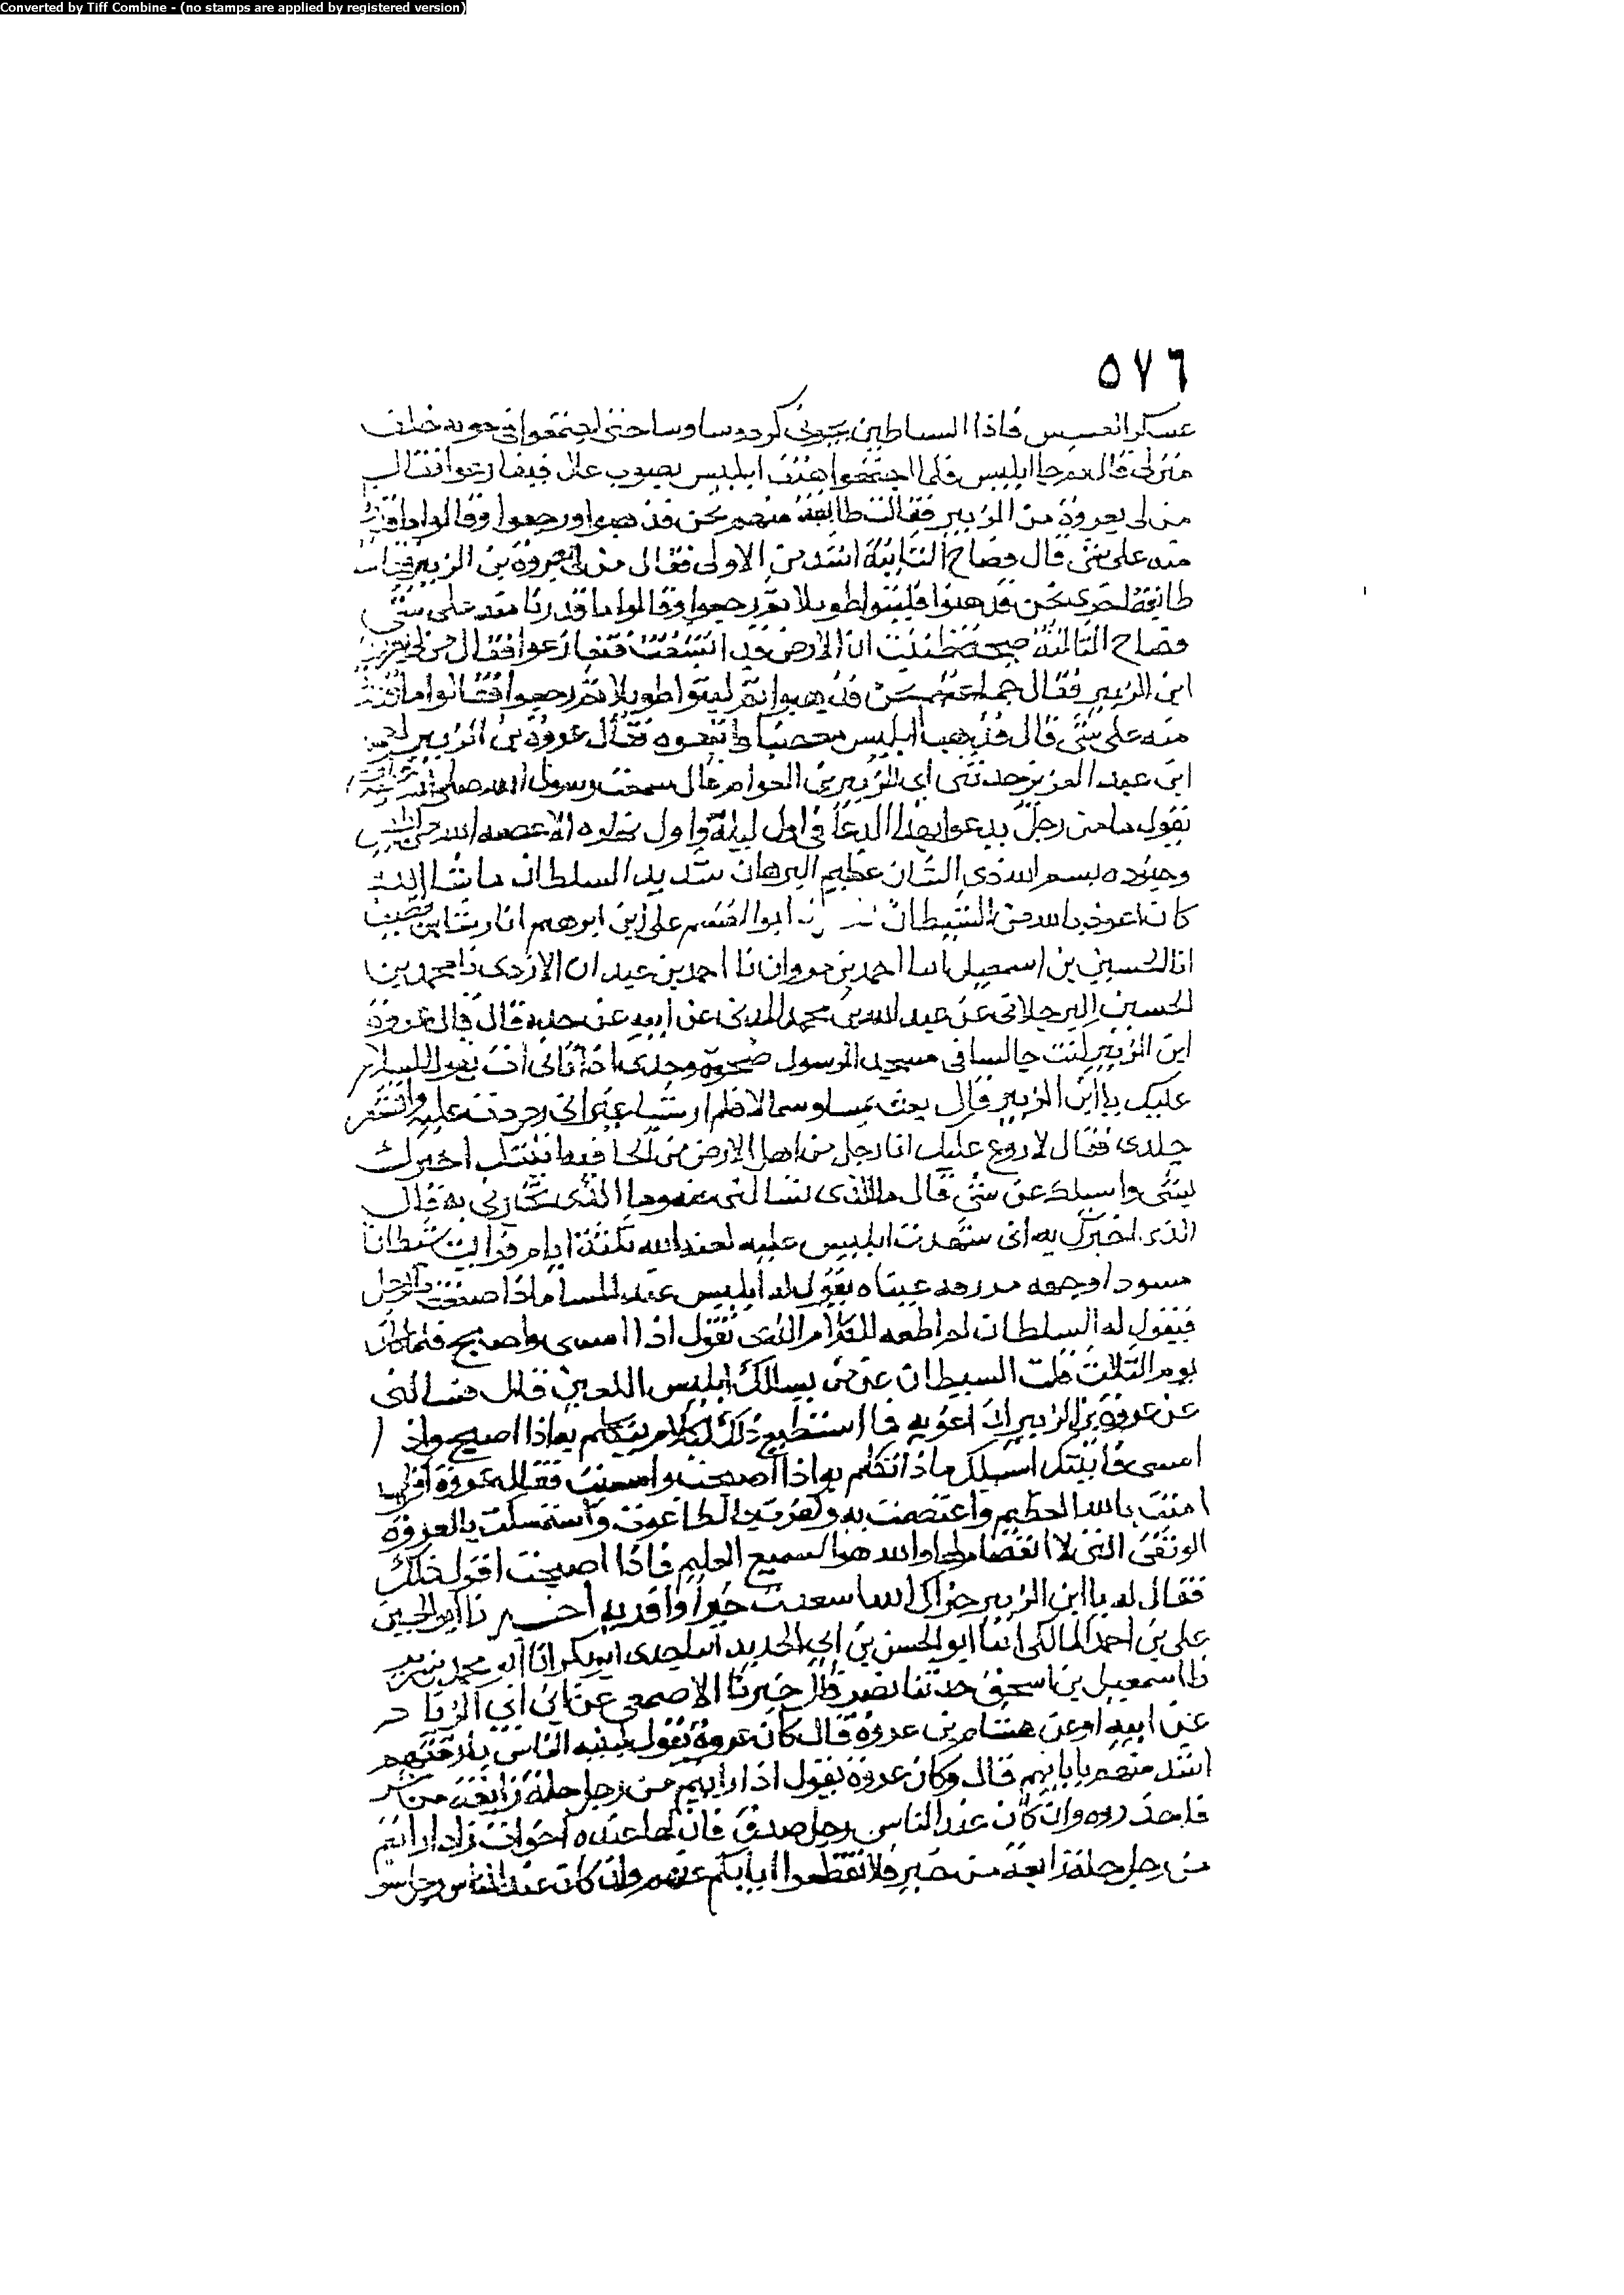 Converted by Tiff Combine - (no stamps are applied by registered version)
٥٧٦
عسكر الخميس فاذا الشياطين كردوسا حتى اجتمعوا في خلف
منزلي قال ثم جا ابليس فلما اجتمعوا هتف ابليس بصوت عال فتفازعوا فقال
من لي بعروة بن الزبير فقالت طائفة منهم نحن فذهبوا ورجعوا وقالوا ما قدرنا
منه على شي قال فصاح الثانية اشد من الاولى فقال من لي بعروة بن الزبير فقالت
طائفة اخرى نحن فذهبوا فلبثوا طويلا ثم رجعوا وقالوا ما قدرنا منه على شي
فصاح الثالثة صيحة ظننت ان الارض قد انشقت فتفازعوا فقال من لي بعروة
ابن الزبير فقال جماعتهم نحن فذهبوا ثم لبثوا طويلا ثم رجعوا فقالوا ما قدرنا
منه على شي قال فذهب ابليس مغضبا واتبعوه فقال عروة بن الزبير لعمر
ابن عبد العزيز حدثني ابي الزبير بن العوام قال سمعت رسول الله صلى الله عليه
يقول ما من رجل يدعوا بهذا الدعا في اول ليله واول نهاره الا عصمه الله من ابليس
وجنوده بسم الله ذي الشان عظيم البرهان شديد السلطان ما شا الله
كان اعوذ بالله من الشيطان ابو القسم علي بن ابرهيم انا رشا بن نظيف
انا الحسين بن اسمعيل انا احمد بن مروان نا احمد بن عبدان الازدي نا محمد بن
الحسين البرجلاني عن عبد الله بن محمد المدني عن ابيه عن جده قال قال عروة
ابن الزبير كنت جالسا في مسجد الرسول ضحوة وحدي اذ اتاني ات يقول السلام
عليك يا ابن الزبير قال يمينا وشمالا فلم ار شيا غير اني رددت عليه واقشعر
جلدي فقال لا روع عليك انا رجل من اهل الارض من الخافية اتيتك اخبرك
بشي واسيلك عن شي قال ما الذي تسالني عنه وما الذي تخبرني به قال
الذي اخبرك به اني شهدت ابليس عليه لعنة الله ثلثة ايام فرايت شيطانا
مسودا وجهه مزرقة عيناه يقول له ابليس عند المسا ماذا صنعت بالرجل
فيقول له الشيطان لم اطقه للكلام الذي يقول اذا امسى واصبح فلما كان
يوم الثلاث قلت للشيطان عن من يسالك ابليس اللعين قال يسالني
عن عروة بن الزبير ان اغويه فما استطيع ذلك لكلام يتكلم به اذا اصبح واذا
امسى فاتيتك اسيلك ماذا تتكلم به اذا اصبحت وامسيت فقال له عروة اقول
امنت بالله العظيم واعتصمت به وكفرت بالطاغوت واستمسكت بالعروة
الوثقى التي لا انفصام لها والله هو السميع العليم فاذا اصبحت اقول ذلك
فقال له يا ابن الزبير جزاك الله خيرا اخبرنا ابو الحسن
علي بن احمد المالكي انا ابو الحسن بن ابي الحديد انا جدي ابو بكر انا محمد بن
نا اسمعيل بن اسحق حدثنا نصر قال خبرنا الاصمعي عن ابن ابي الزناد
عن ابيه او عن هشام بن عروة قال كان عروة يقول الناس بازمنتهم
اشد منهم بابايهم قال وكان عروة يقول اذا رايتم من رجل خلة رايعة من شر
فاحذروه وان كان عند الناس رجل صدق فان لها عنده اخوات واذا رايتم
من رجل خلة رايعة من خير فلا تقطعوا اياسكم عنه وان كان عند الناس رجل سو